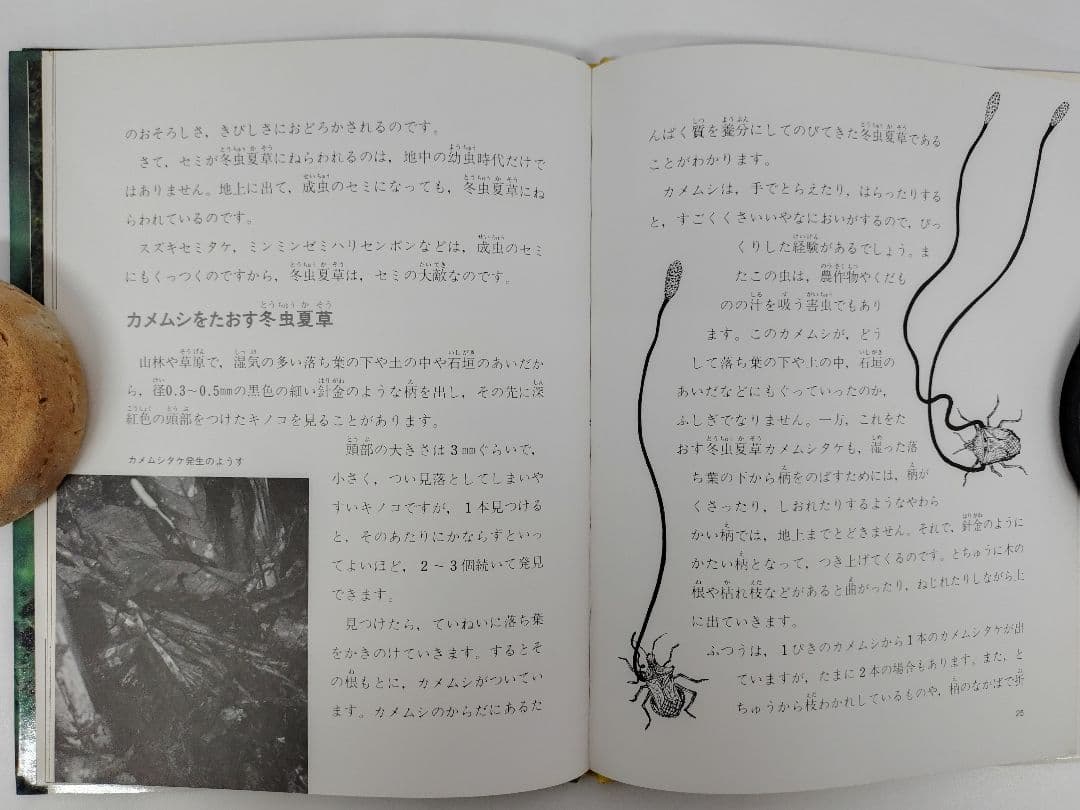 のおそろしさ，きびしさにおどろかされるのです。
さて，セミが冬虫夏草にねらわれるのは，地中の幼虫時代だけで
はありません。地上に出て，成虫のセミになっても，冬虫夏草にね
らわれているのです。
スズキセミタケ，ミンミンゼミハリセンボンなどは，成虫のセミ
にもくっつくのですから，冬虫夏草は，セミの大敵なのです。
カメムシをたおす冬虫夏草
山林や草原で，湿気の多い落ち葉の下や土の中や石垣のあいだか
ら，径0.3〜0.5mmの黒色の細い針金のような柄を出し，その先に深
紅色の頭部をつけたキノコを見ることがあります。
カメムシタケ発生のようす
頭部の大きさは3mmぐらいで，
小さく，つい見落としてしまいや
すいキノコですが，1本見つける
と，そのあたりにかならずといっ
てよいほど，2〜3個続いて発見
できます。
見つけたら，ていねいに落ち葉
をかきのけていきます。するとそ
の根もとに，カメムシがついてい
ます。カメムシのからだにあるた
んぱく質を養分にしてのびてきた冬虫夏草である
ことがわかります。
カメムシは，手でとらえたり，はらったりする
と，すごくくさいいやなにおいがするので，びっ
くりした経験があるでしょう。ま
たこの虫は，農作物やくだも
のの汁を吸う害虫でもあり
ます。このカメムシが，どう
して落ち葉の下や土の中，石垣の
あいだなどにもぐっていったのか，
ふしぎでなりません。一方，これをた
おす冬虫夏草カメムシタケも，湿った落
ち葉の下から柄をのばすためには，柄が
くさったり，しおれたりするようなやわら
かい柄では，地上までとどきません。それで，針金のように
かたい柄となって，つき上げてくるのです。とちゅうに木の
根や枯れ枝などがあると曲がったり，ねじれたりしながら上
に出ていきます。
ふつうは，1ぴきのカメムシから1本のカメムシタケが出
ていますが，たまに2本の場合もあります。また，と
ちゅうから枝わかれしているものや，柄のなかばで
25